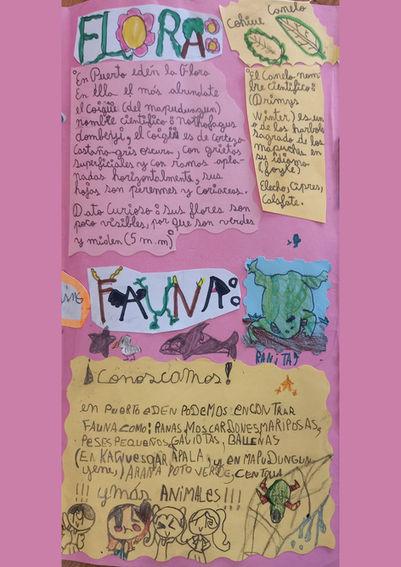 FLORA:
Cohiue Canelo
En Puerto edén la Flora
En ella el más abundate
el coigüe (del mapudungun)
nombre científico: nothofagus
dombeyi, el coigüe es de corteza
Castaño-gris oscuro, con grietas
superficiales y con ramas apla-
nadas horizontalmente, sus
hojas son perennes y coriaceas.
Dato Curioso: sus flores son
poco visibles, por que son verdes
y miden (5 m.m)
El Canelo nom
bre científico:
(Drimys
Winter) es un
de los harbols
sagrado de los
mapuchu en
su idioma
(foyke)
Elecho, Cipres,
Calafate.
ing
FAUNA:
RANITAS
¡Conoscamos!
en PUERTO EDEN PODEMOS ENCONTRAR
FAUNA COMO: RANAS, MOSCARDONES, MARIPOSAS,
PESES PEQUEÑOS, GAVIOTAS, BALLENAS
(En KAWESQAR APALA y en MAPUDUNGUN
yene,) ARAÑA POTO VERDE, CENTOLLA
!!! y más ANIMALES!!!